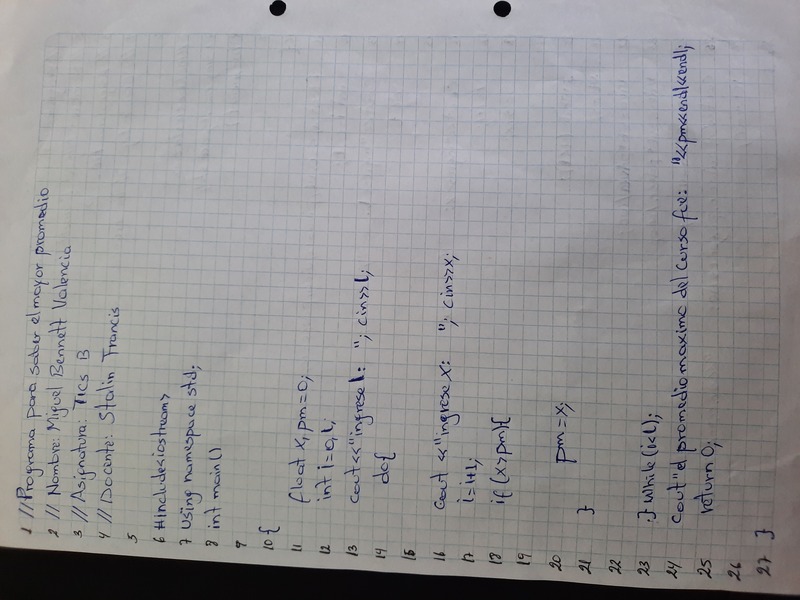 1 //Programa para saber el mayor promedio
2 // Nombre: Miguel Bennett Valencia
3 // Asignatura: TICS B
4 // Docente: Stalin Francis
5
6 #include<iostream>
7 using namespace std;
8 int main()
9
10 {
11 float x, pm=0;
12 int i=0, l;
13 cout<<"ingrese l: "; cin>>l;
14 do{
15
16 cout <<"ingrese x: "; cin>>x;
17 i=i+1;
18 if (x>pm){
19
20 pm=x;
21 }
22
23 } while (i<l);
24 cout"el promedio maximo del curso fue: "<<pm<<endl<<endl;
25 return 0;
26
27 }